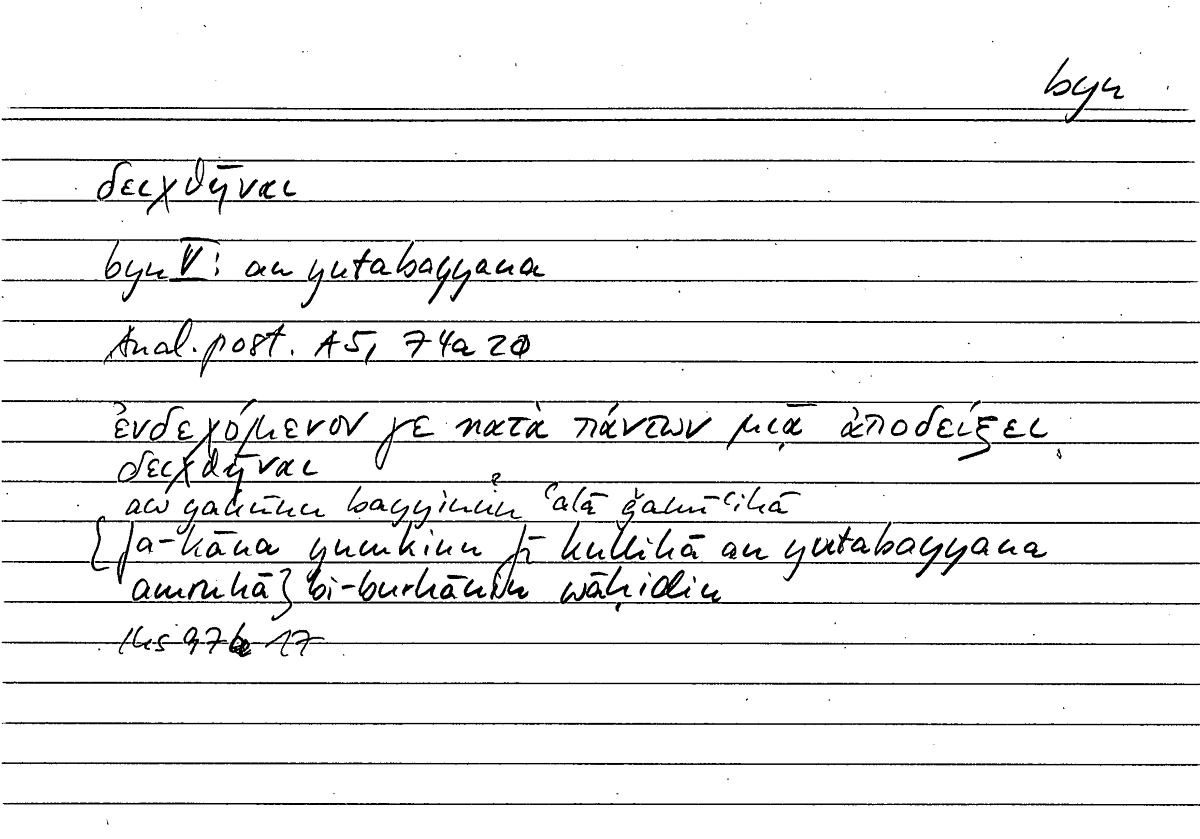 byn
δειχθῆναι
byn V: an yutabayyana
Anal. post. A5, 74a20
ἐνδεχόμενον γε κατὰ πάντων μιᾷ ἀποδείξει
δειχθῆναι
aw yakūnu bayyinun ? ʿalā ǧamīʿihā
{fa-kāna yumkinu fī kullihā an yutabayyana
amruhā} bi-burhānin wāḥidin
Hs 97 17